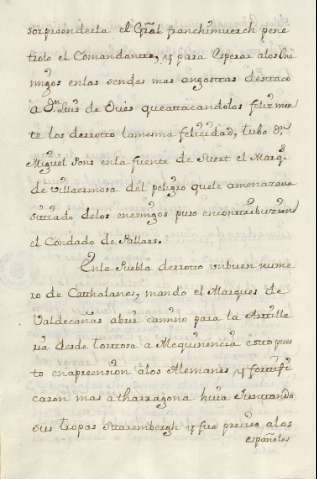 sorprenderla el Gral franchimuerch pene
trolo el Comandante, y para esperar alos Ene
migos enlas sendas mas angostras destaco
a Dn Luis de Ovies que atacandolos felizmen
te los derroto la mesma felicidad, tubo Dn
Miguel Pons enla fuente de Suert el Marqs
de Villahermosa del peligro quele amenazava
sitiado delos enemigos puso en contribuzion
el Condado de Pallars.
Enla Puebla derroto un buen nume
ro de Cathalanes, mando el Marques de
Valdecañas abrir camino para la Artille
ria desde tortosa a Mequinencia esto puso
to en aprension alos Alemanes, y fortifi
caron mas atharragona hiva
sus tropas Starembergh y fue preciso alos
españoles